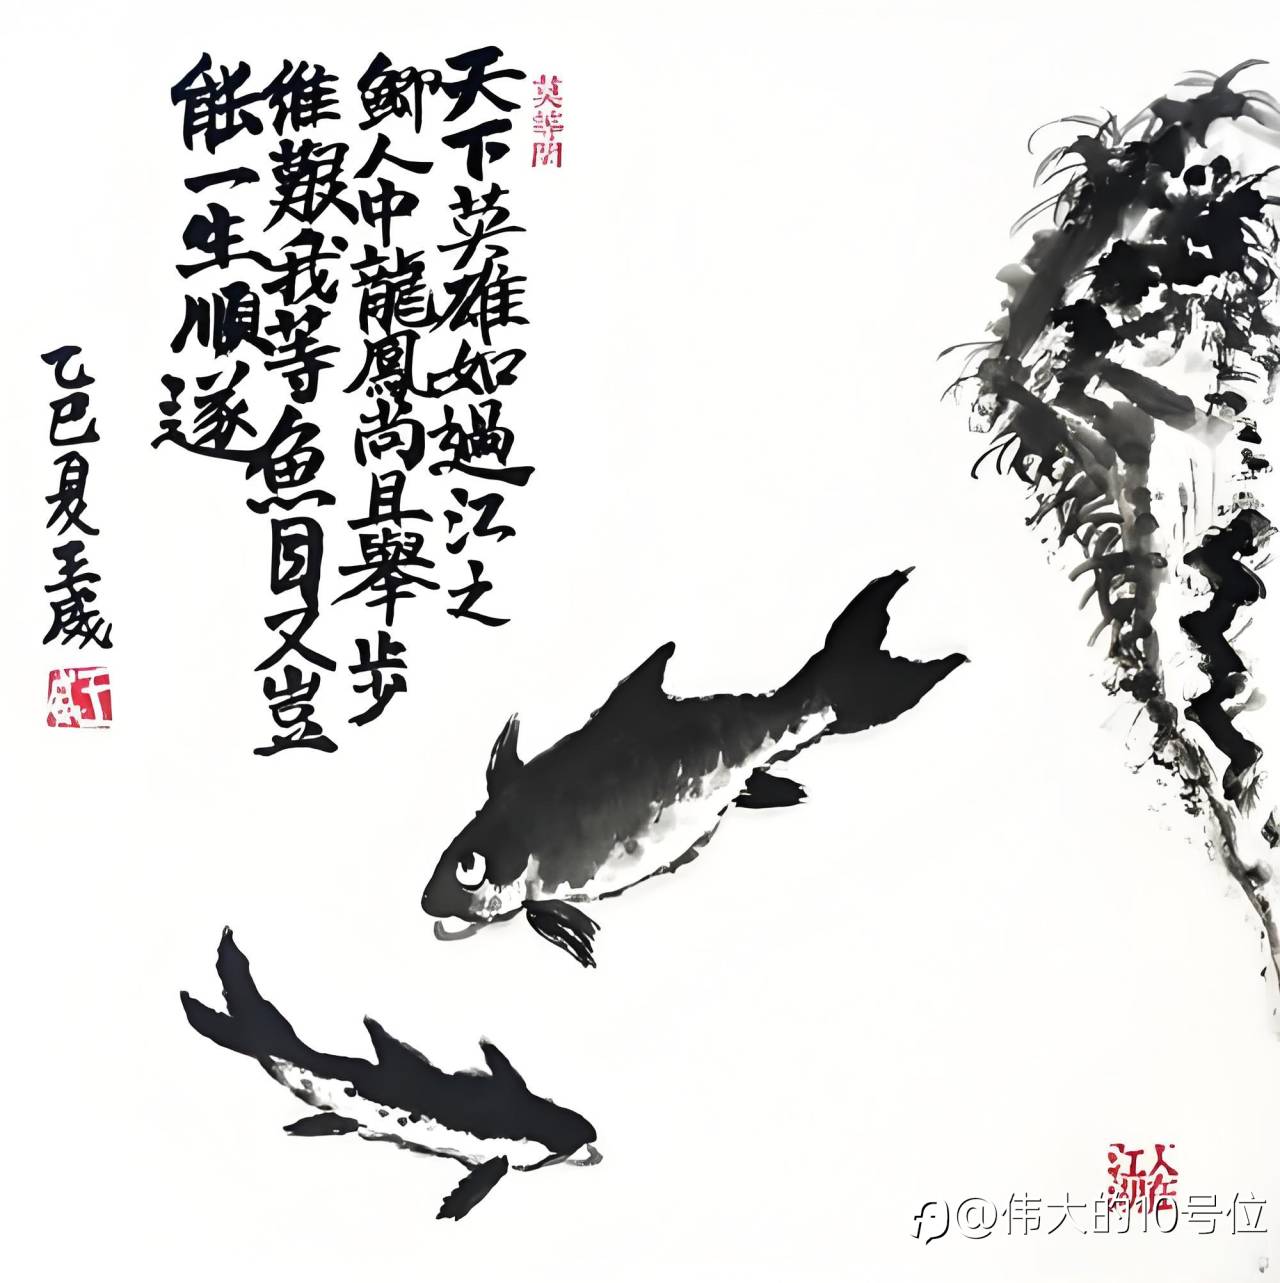 天下英雄如過江之
鯽人中龍鳳尚且舉步
維艱我等魚目又豈
能一生順遂
乙巳夏王威
王威
人在江湖
@伟大的10号位